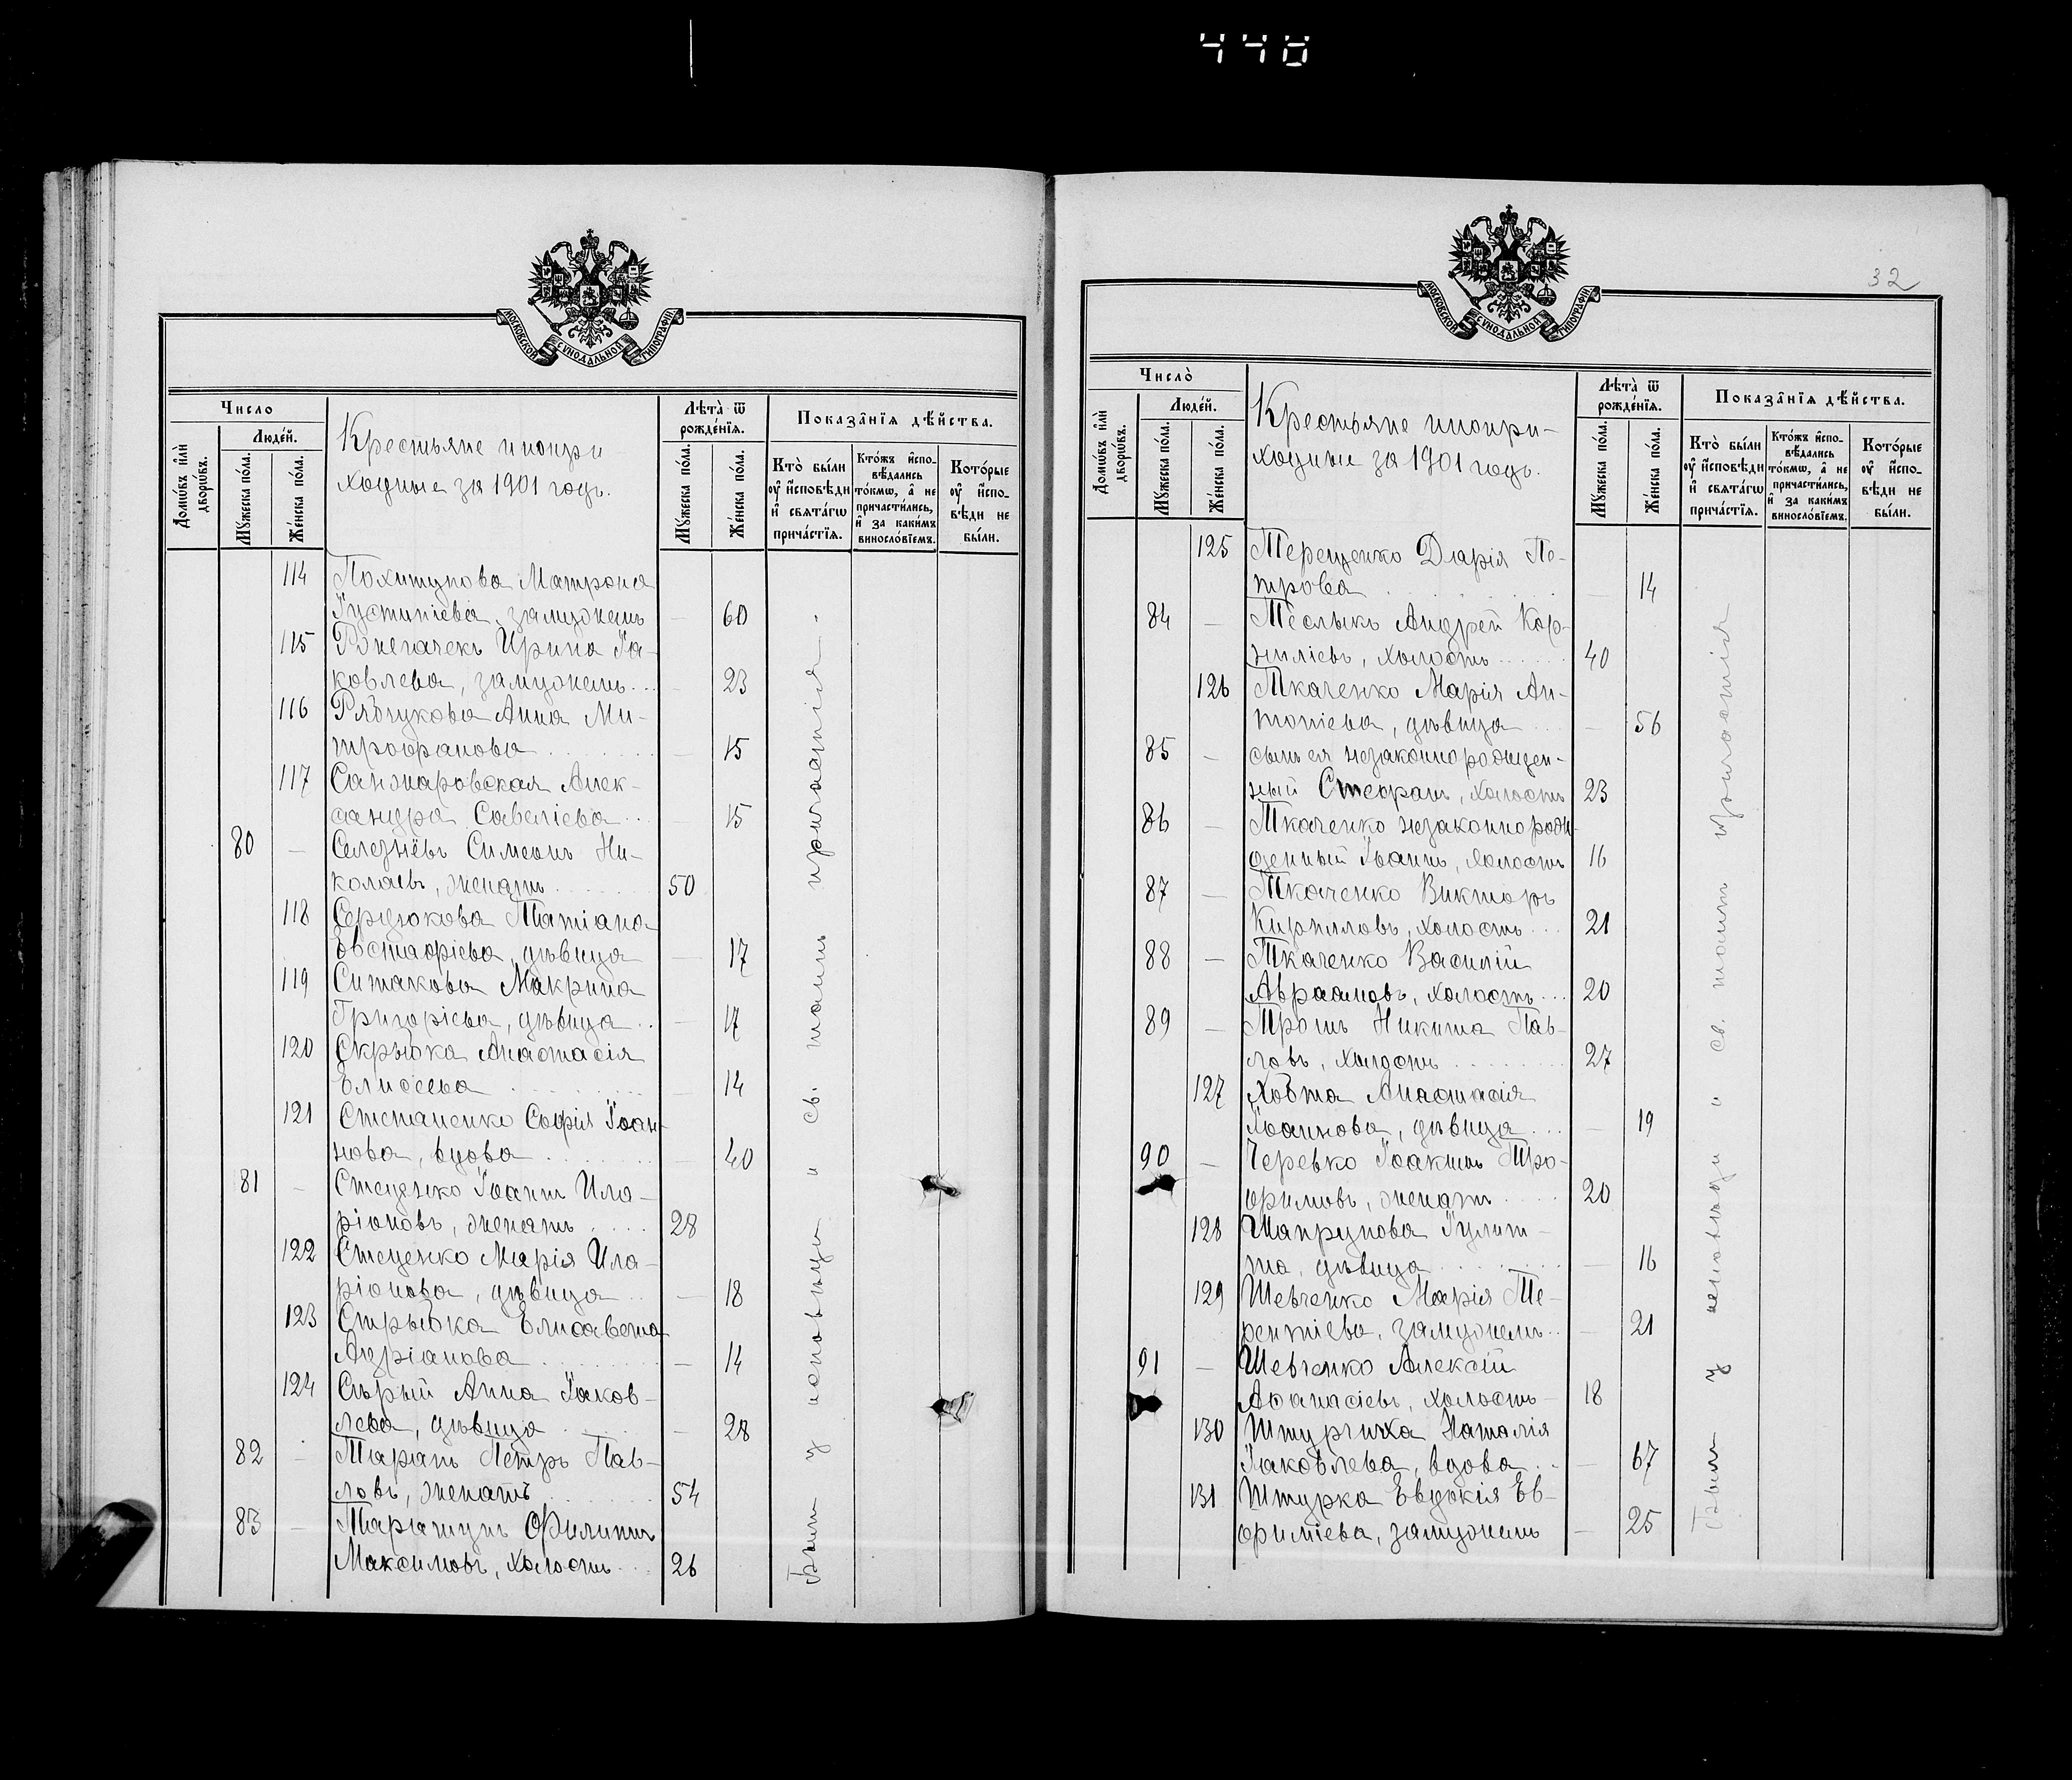 440
МОСКОВСКОЙ СѴНОДАЛЬНОЙ ТИПОГРАФІИ
Число
Домѡ́въ и҆лѝ дворѡ́въ.
Люде́й.
Мꙋ́жеска по́ла.
Же́нска по́ла.
Крестьяне инопри
ходные за 1901 годъ.
Лѣ́та ѿ рожде́нїѧ.
Мꙋ́жеска по́ла.
Же́нска по́ла.
Показа̑нїѧ дѣ́йства.
Кто̀ бы́ли ᲂу҆ и҆сповѣ́ди и҆ свѧта́гѡ прича́стїѧ.
Кто́жъ и҆спо-вѣ́дались то́кмѡ, а҆ не причасти́лись, и҆ за каки́мъ винослѻ́вїемъ.
Кото́рые ᲂу҆ и҆спо-вѣ́ди не бы́ли.
114 Похитунова Матрона
Іустиніева, замужемъ — 60
115 Ронегачекъ Ирина Іа-
ковлева, замужемъ... — 23
116 Рябчукова Анна Ми-
трофанова — 15
117 Санжаровская Алек-
сандра Савеліева.. — 15
80 — Селезнёвъ Симеонъ Ни-
колаевъ, женатъ 50
118 Сердюкова Татіана
Евстафіева, дѣвица — 17
119 Ситакова Макрина
Григоріева, дѣвица .. — 17
120 Скрыбка Анастасія
Елисеева — 14
121 Степаненко Софія Іоан-
нова, вдова — 40
81 — Стеценко Іоаннъ Ила-
ріоновъ, женатъ .... 28
122 Стеценко Марія Ила-
ріонова, дѣвица .. — 18
123 Стрыбка Елисавета
Адріанова — 14
124 Сѣрый Анна Іаков-
лева, дѣвица — 28
82 — Таранъ Петръ Пав-
ловъ, женатъ 54
83 — Таратунъ Филиппъ
Максимовъ, холостъ... 26
Были у исповѣди и св. таинъ причастія.
32
МОСКОВСКОЙ СѴНОДАЛЬНОЙ ТИПОГРАФІИ
Число̀
Домѡ́въ и҆лѝ дворѡ́въ.
Люде́й.
Мꙋ́жеска по́ла.
Же́нска по́ла.
Крестьяне инопри-
ходные за 1901 годъ.
Лѣ́та ѿ рожде́нїѧ.
Мꙋ́жеска по́ла.
Же́нска по́ла.
Показа̑нїѧ дѣ́йства.
Кто̀ бы́ли ᲂу҆ и҆сповѣ́ди и҆ свѧта́гѡ прича́стїѧ.
Кто́жъ и҆спо-вѣ́дались то́кмѡ, а҆ не причасти́лись, и҆ за каки́мъ винослѻ́вїемъ.
Кото́рые ᲂу҆ и҆спо-вѣ́ди не бы́ли.
125 Терещенко Дарія Пе-
трова — 14
84 — Теслыкъ Андрей Кор-
ниліевъ, холостъ 40
126 Ткаченко Марія Ан-
тоніева, дѣвица — 56
85 — сынъ ея незаконнорожден-
ный Стефанъ, холостъ 23
86 — Ткаченко незаконнорож-
денный Іоаннъ, холостъ 16
87 — Ткаченко Викторъ
Кирилловъ, холостъ ... 21
88 — Ткаченко Василій
Авраамовъ, холостъ... 20
89 — Трошъ Никита Пав-
ловъ, холостъ 27
127 Ховта Анастасія
Іоаннова, дѣвица ... — 19
90 — Черевко Іоакимъ Тро-
фимовъ, женатъ 20
128 Шапрунова Іулит-
та, дѣвица — 16
129 Шевченко Марія Те-
рентіева, замужемъ.. — 21
91 — Шевченко Алексій
Афанасіевъ, холостъ — 18
130 Штургиха Наталія
Іаковлева, вдова .. — 67
131 Штурка Евдокія Ев-
фиміева, замужемъ — 25
Были у исповѣди и св. таинъ причастія